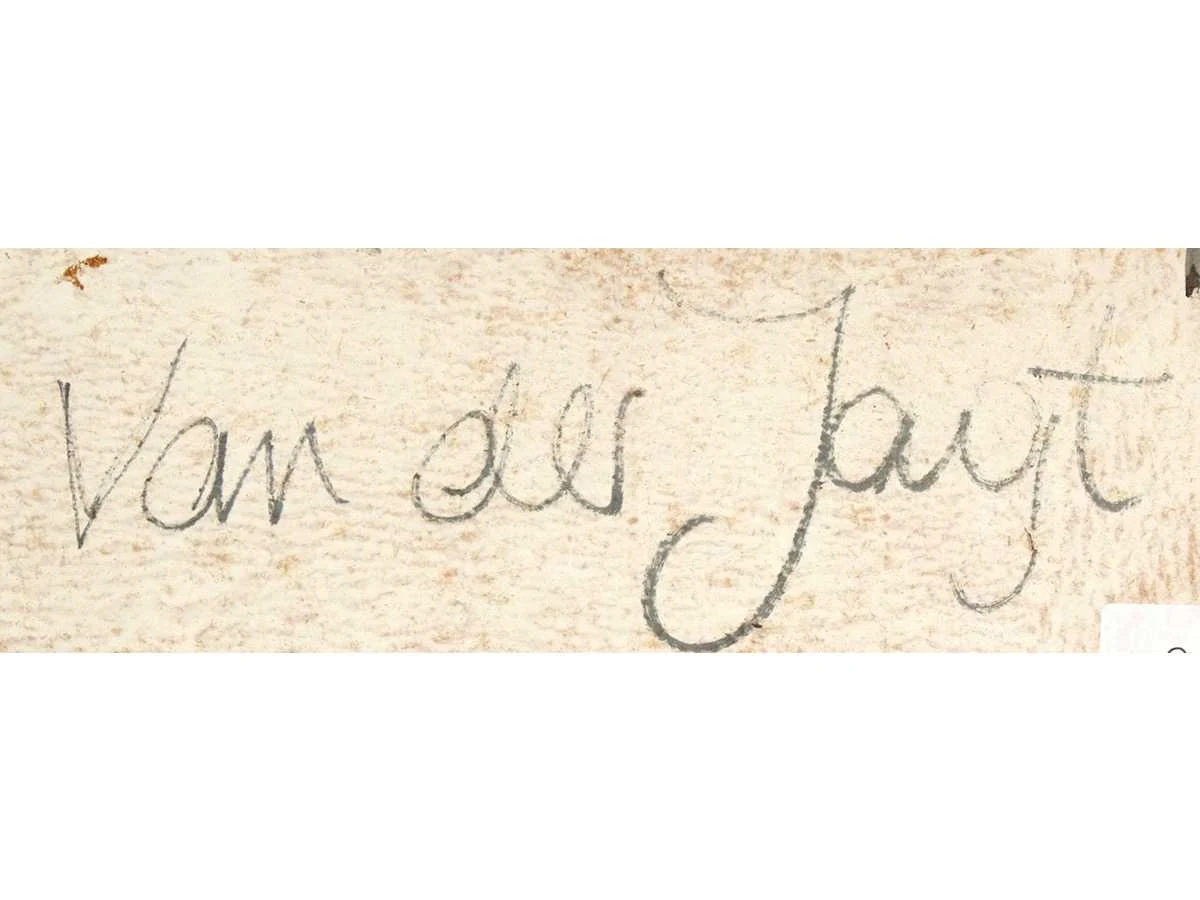 Van der Jagt